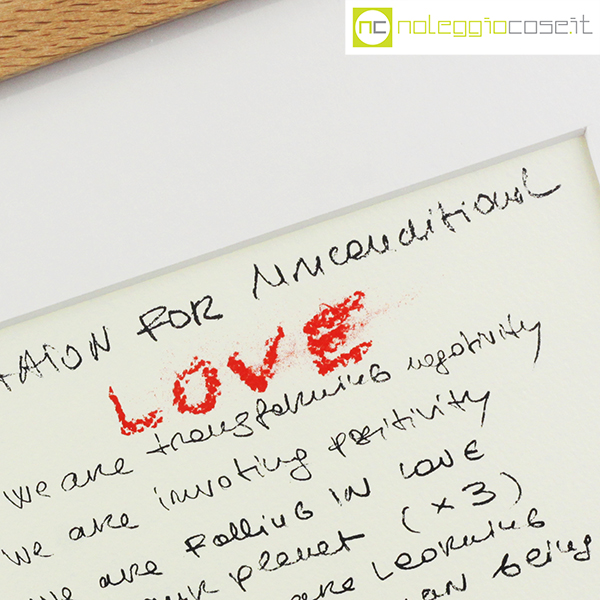 nc noleggiocose.it
FOR Unconditional
LOVE
we are transforming negativity
we are invoting positivity
we are falling in LOVE
planet (x3)
are learning
being